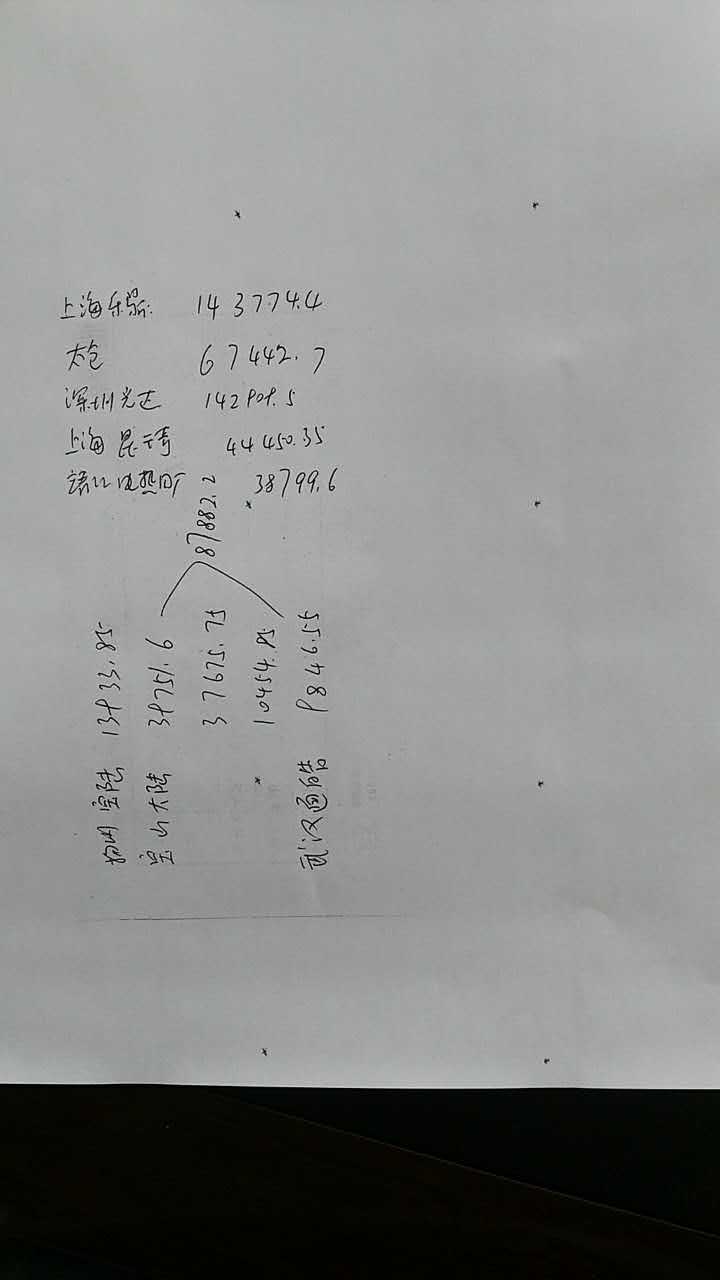 上海 143774.4
太仓 67442.7
深圳光 142909.5
上海 44450.35
电热 38799.6
87882.2
13933.85
山大陆 39751.6
37675.75
10454.85
武汉通皓 9846.55